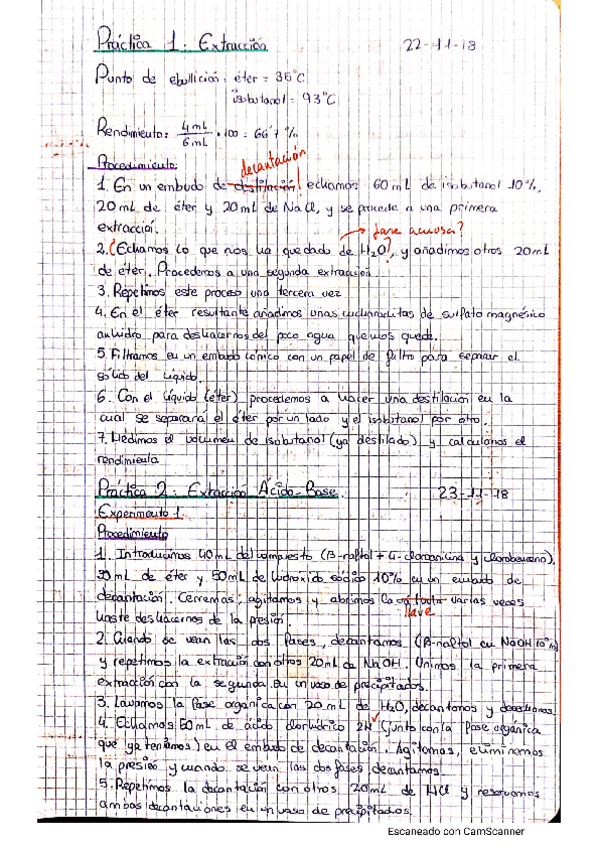 Práctica 1: Extracción 22-11-18
Punto de ebullición: éter = 35°C
isobutanol = 93°C
Rendimiento: 4mL/6mL · 100 = 66'7 %
Procedimiento: decantación
1. En un embudo de destilación! echamos 60 mL de isobutanol 10%,
20 mL de éter y 20 mL de NaCl, y se procede a una primera
extracción. → fase acuosa?
2. (Echamos lo que nos ha quedado de H2O?, y añadimos otros 20mL
de éter. Procedemos a una segunda extracción
3. Repetimos este proceso una tercera vez
4. En el éter resultante añadimos unas cucharaditas de sulfato magnésico
anhidro para deshacernos del poco agua que nos quede.
5. Filtramos en un embudo cónico con un papel de filtro para separar el
sólido del líquido.
6. Con el líquido (éter) procedemos a hacer una destilación en la
cual se separará el éter por un lado y el isobutanol por otro.
7. Medimos el volumen de isobutanol (ya destilado) y calculamos el
rendimiento
Práctica 2: Extracción Ácido-Base. 23-11-18
Experimento 1.
Procedimiento
1. Introducimos 40 mL del compuesto (β-naftol + 4-cloroanilina y clorobenceno),
30 mL de éter y 50mL de hidróxido sódico 10% en un embudo de
decantación. Cerramos, agitamos y abrimos la varias veces
llave
hasta deshacernos de la presión.
2. Cuando se vean las dos fases, decantamos (β-naftol en NaOH 10%)
y repetimos la extracción con otros 20mL de NaOH. Unimos la primera
extracción con la segunda en un vaso de precipitados.
3. Lavamos la fase orgánica con 20 mL de H2O, decantamos y desechamos.
4. Echamos 50 mL de ácido clorhídrico 2M (junto con la fase orgánica
que ya teníamos) en el embudo de decantación. Agitamos, eliminamos
la presión y cuando se vean las dos fases, decantamos.
5. Repetimos la decantación con otros 20mL de HCl y reservamos
ambas decantaciones en un vaso de precipitados.
Escaneado con CamScanner